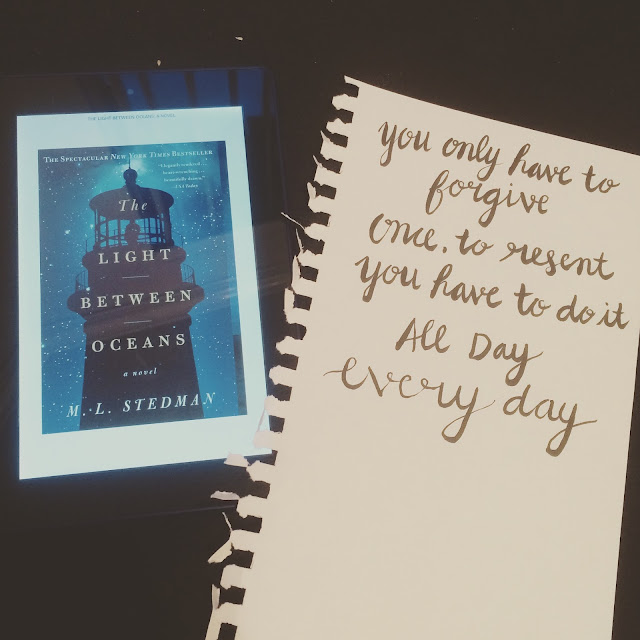 THE LIGHT BETWEEN OCEANS: A NOVEL
THE SPECTACULAR NEW YORK TIMES BESTSELLER
—USA Today
The
LIGHT
BETWEEN
OCEANS
a novel
M. L. STEDMAN
you only have to
forgive
once. to resent
you have to do it
All Day
every day